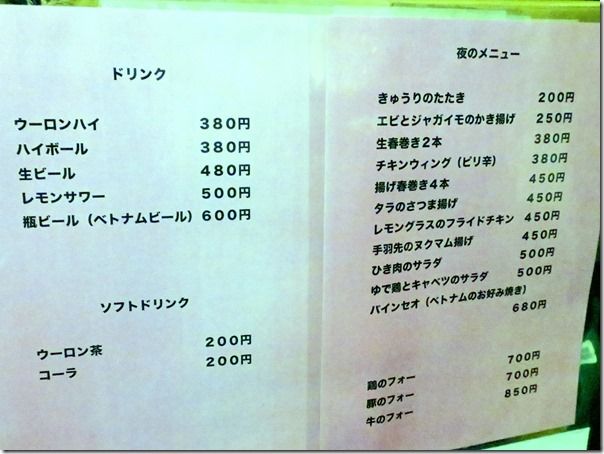 ドリンク
ウーロンハイ 380円
ハイボール 380円
生ビール 480円
レモンサワー 500円
瓶ビール（ベトナムビール）600円
ソフトドリンク
ウーロン茶 200円
コーラ 200円
夜のメニュー
きゅうりのたたき 200円
エビとジャガイモのかき揚げ 250円
生春巻き2本 380円
チキンウィング（ピリ辛） 380円
揚げ春巻き4本 450円
タラのさつま揚げ 450円
レモングラスのフライドチキン 450円
手羽先のヌクマム揚げ 450円
ひき肉のサラダ 500円
ゆで鶏とキャベツのサラダ 500円
バインセオ（ベトナムのお好み焼き）
680円
鶏のフォー 700円
豚のフォー 700円
牛のフォー 850円